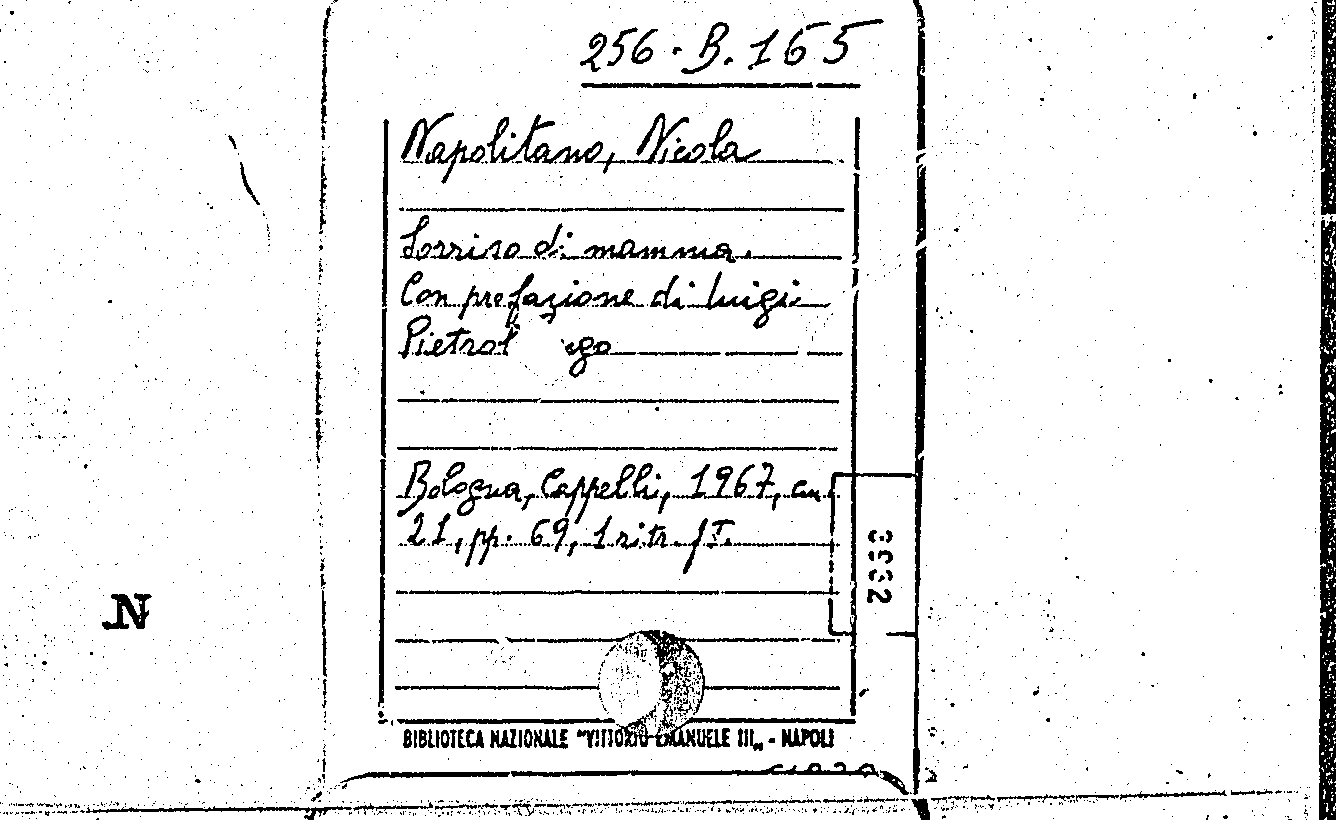 256 · B. 165
Napolitano, Nicola
Sorriso di mamma.
Con prefazione di Luigi
Bologna, Cappelli, 1967, cm.
21, pp. 69, 1 ritr. f.T.
3932
N
BIBLIOTECA NAZIONALE "VITTORIO EMANUELE III„ - NAPOLI